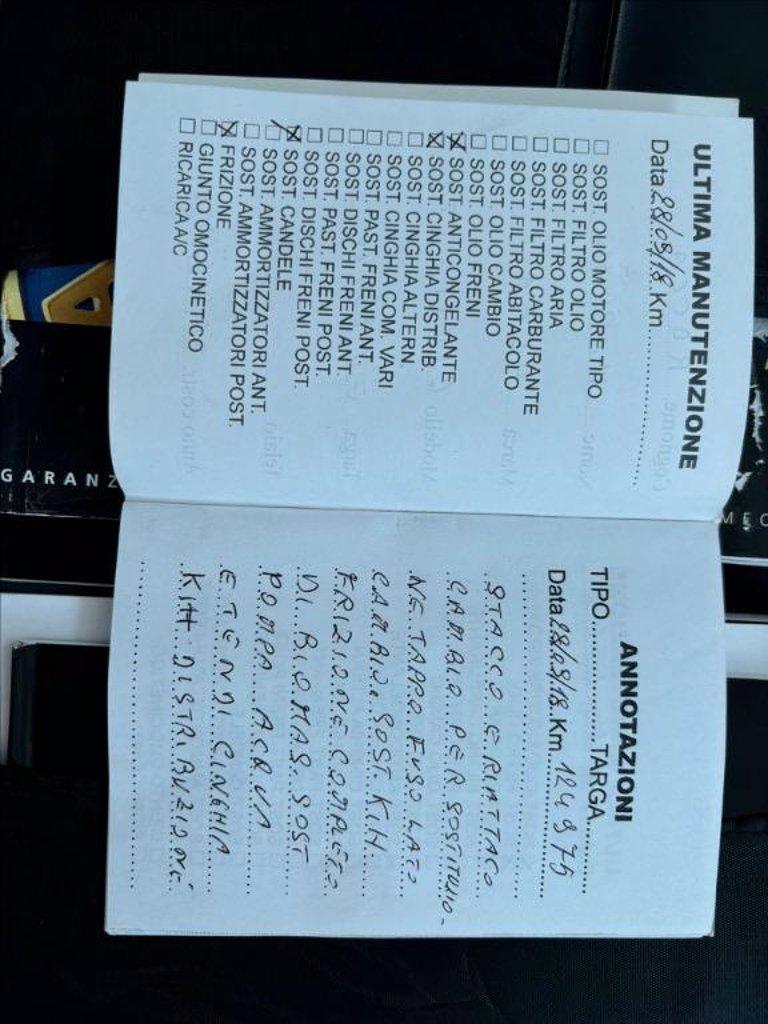 ULTIMA MANUTENZIONE
Data 28/09/18 Km
☐ SOST. OLIO MOTORE TIPO
☐ SOST. FILTRO OLIO
☐ SOST. FILTRO ARIA
☐ SOST. FILTRO CARBURANTE
☐ SOST. FILTRO ABITACOLO
☐ SOST. OLIO CAMBIO
☐ SOST. OLIO FRENI
☒ SOST. ANTICONGELANTE
☒ SOST. CINGHIA DISTRIB.
☐ SOST. CINGHIA ALTERN.
☐ SOST. CINGHIA COM. VARI
☐ SOST. PAST. FRENI ANT.
☐ SOST. DISCHI FRENI ANT.
☐ SOST. PAST. FRENI POST.
☐ SOST. DISCHI FRENI POST.
☒ SOST. CANDELE
☐ SOST. AMMORTIZZATORI ANT.
☐ SOST. AMMORTIZZATORI POST.
☒ FRIZIONE
☐ GIUNTO OMOCINETICO
☐ RICARICA A/C
ANNOTAZIONI
TIPO TARGA
Data 28/09/18 Km 124975
STACCO E RIATTACO
CAMBIO PER SOSTITUIO-
NE TAPPO FUSO LATO
CAMBIO. SOST. KIH
FRIZIONE COMPLETO
DI BIOMAS. SOST
POMPA ACQUA
E TENDI CINGHIA
KIH DISTRIBUZIONE
GARANZ
MEC